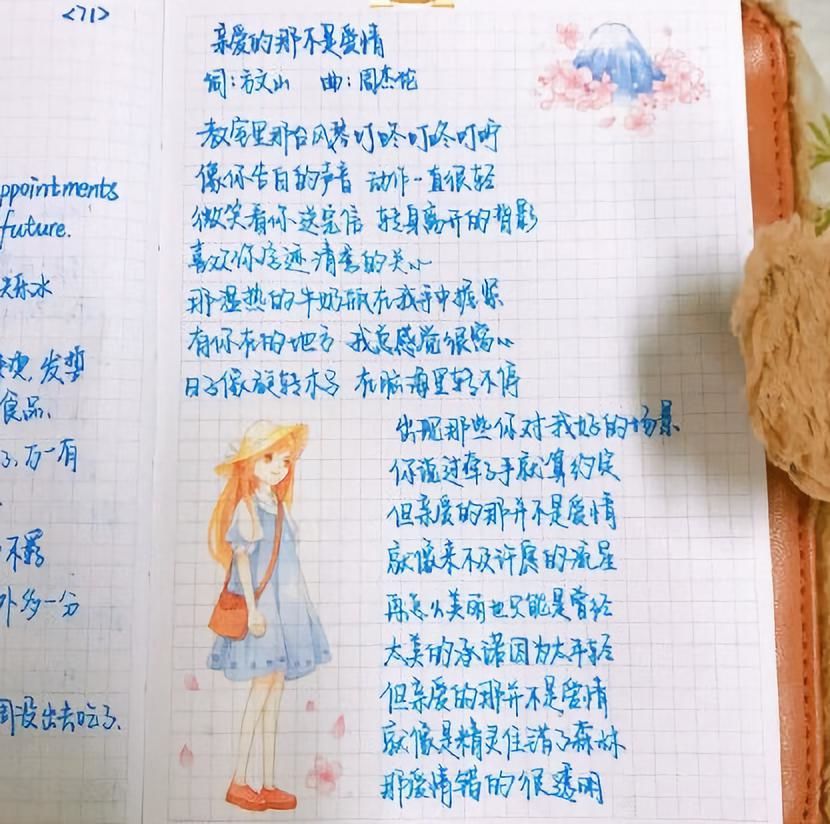 <71>
ppointments
future.
乐水
发型
食品、
了,万一有
不爱
外多一分
周没出去吃了、
亲爱的那不是爱情
词:方文山 曲:周杰伦
教室里那台风琴叮咚叮咚叮咛
像你告白的声音 动作一直很轻
微笑看你送完信 转身离开的背影
喜欢你字迹清秀的关心
那温热的牛奶瓶在我手中握紧
有你在的地方 我总感觉很窝心
日子像旋转木马 在脑海里转不停
出现那些你对我好的场景
你说过牵了手就算约定
但亲爱的那并不是爱情
就像来不及许愿的流星
再怎么美丽也只能是曾经
太美的承诺因为太年轻
但亲爱的那并不是爱情
就像是精灵住错了森林
那爱情错的很透明